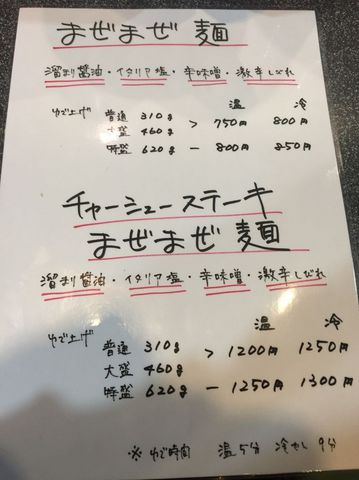 まぜまぜ 麺
溜まり醤油・イタリア塩・辛味噌・激辛しびれ
温 冷
ゆで上げ 普通 310g > 750円 800円
大盛 460g
特盛 620g - 800円 850円
チャーシューステーキ
まぜまぜ 麺
溜まり醤油・イタリア塩・辛味噌・激辛しびれ
温 冷
ゆで上げ
普通 310g > 1200円 1250円
大盛 460g
特盛 620g - 1250円 1300円
※ ゆで時間 温 5分 冷やし 9分